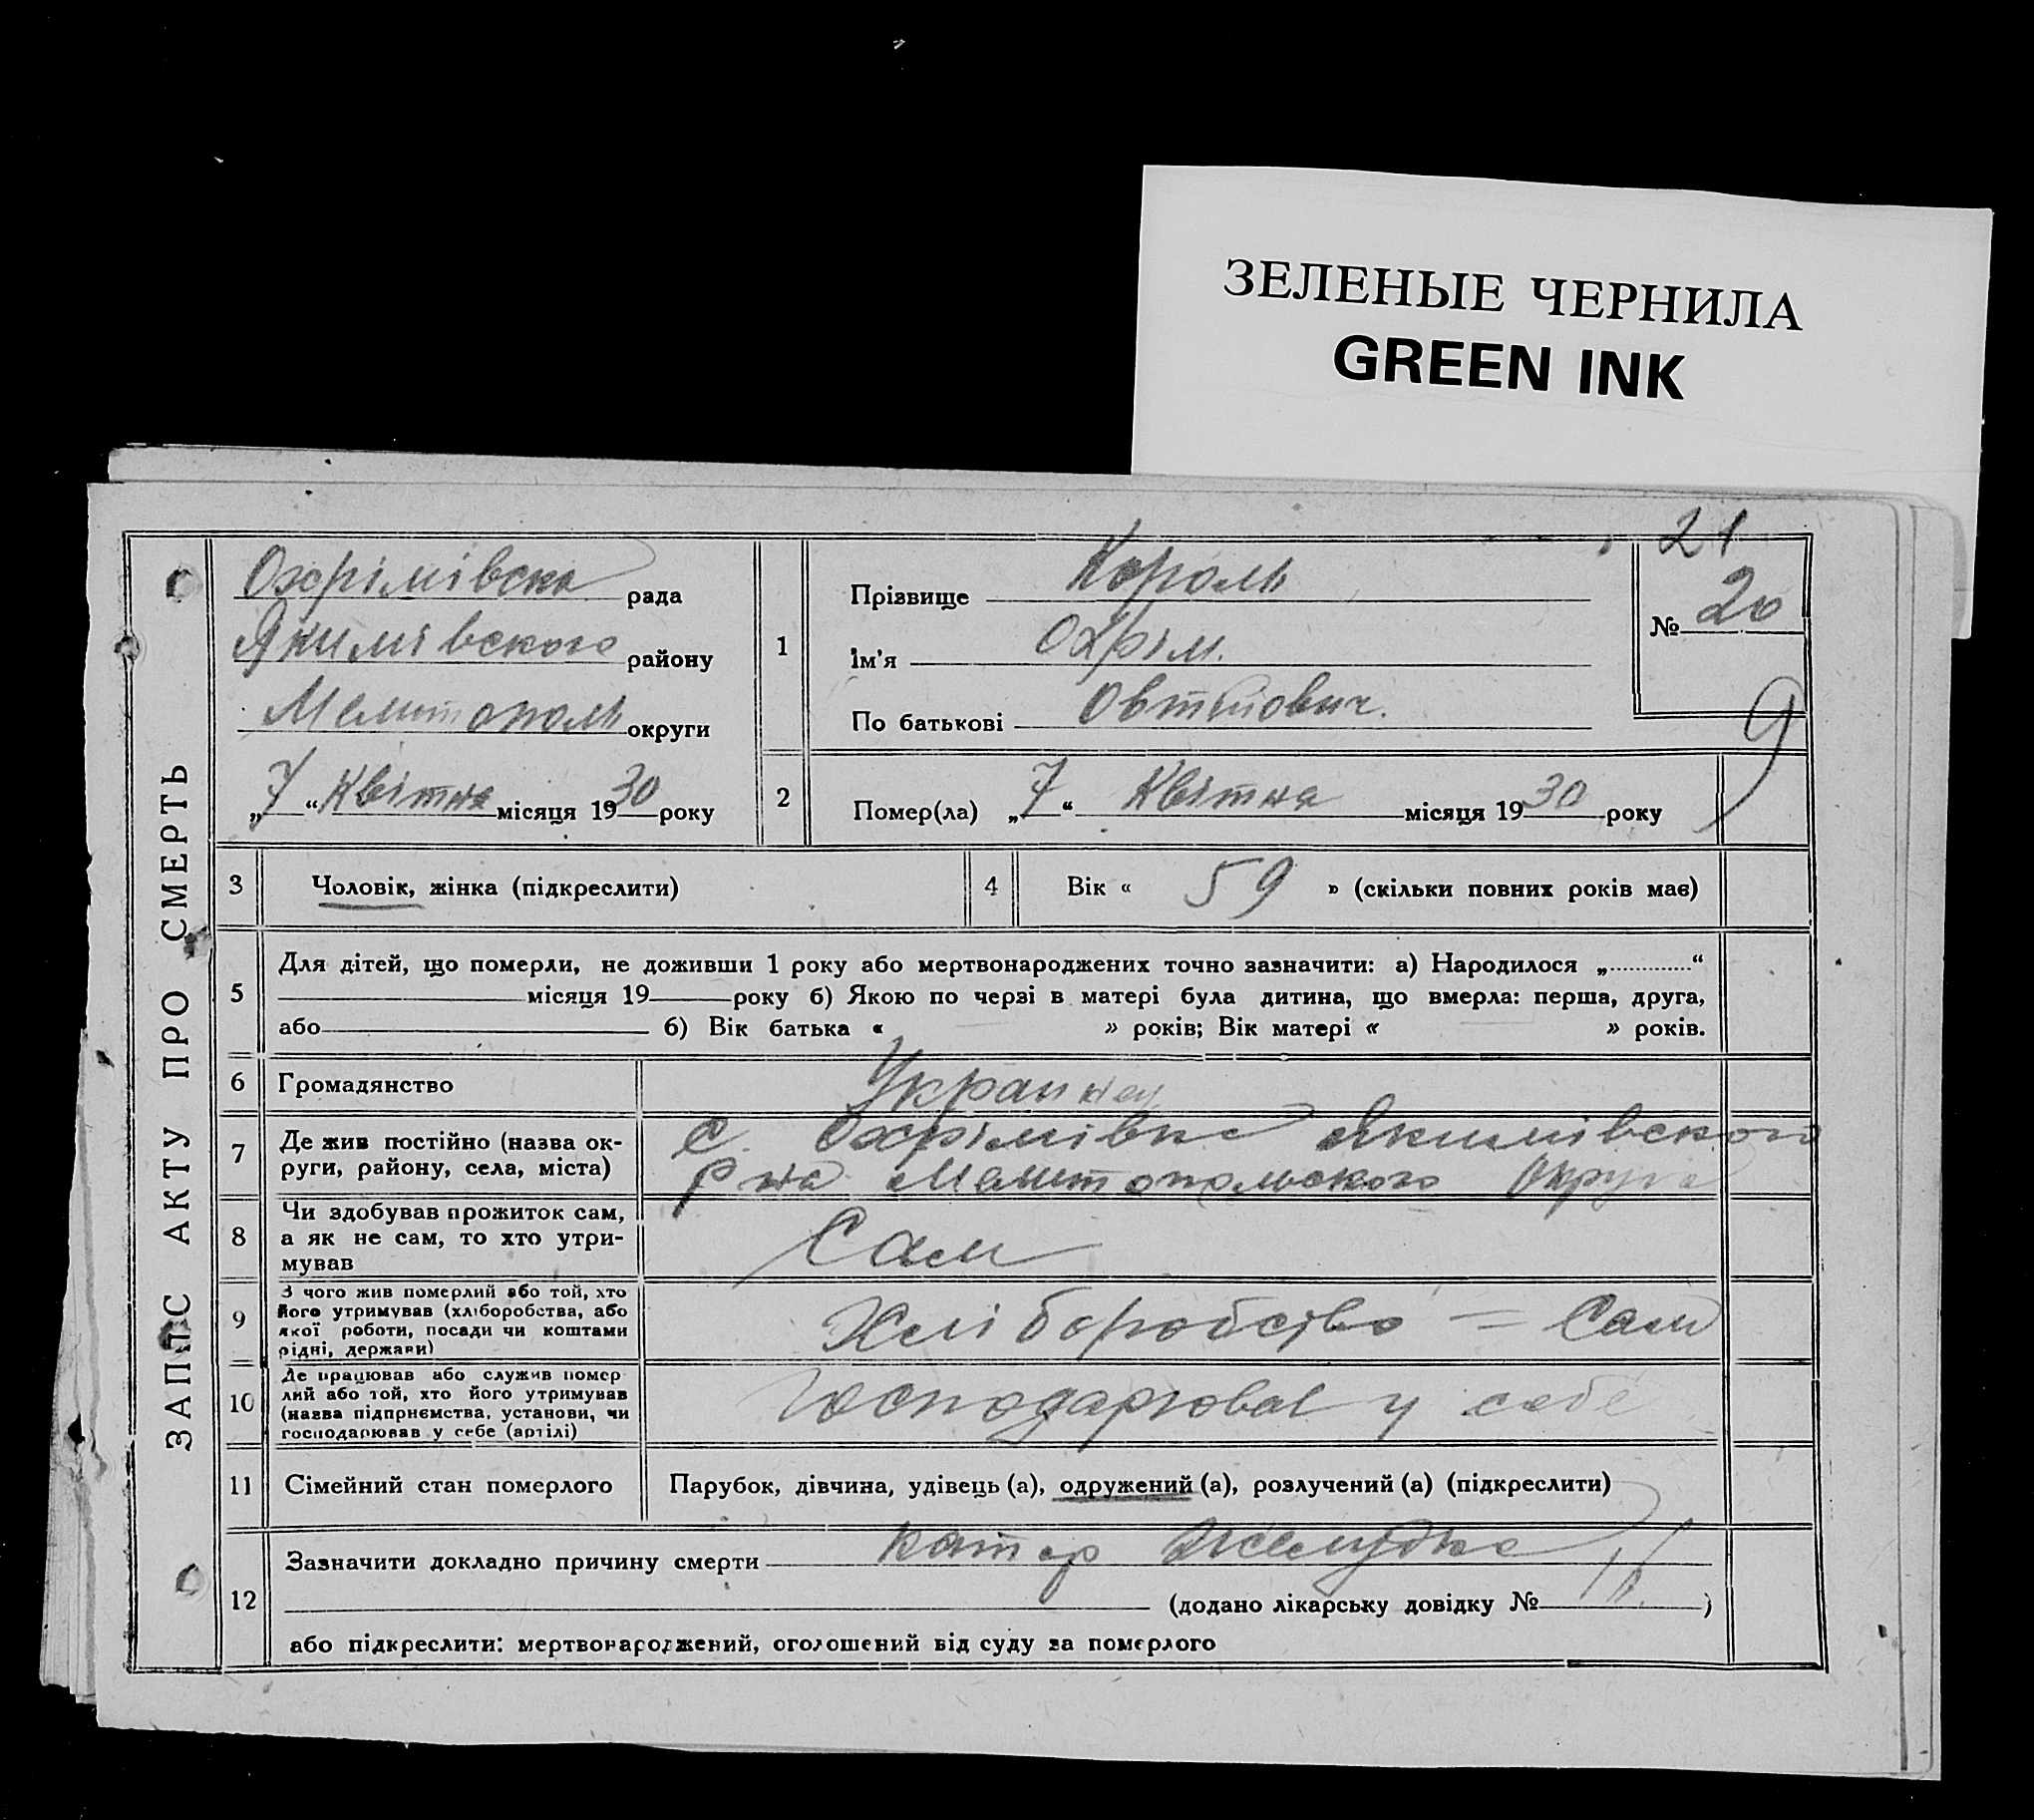 ЗЕЛЕНЫЕ ЧЕРНИЛА
GREEN INK
ЗАПИС АКТУ ПРО СМЕРТЬ
Охрімівска рада
Якимівского району
Мелитополь округи
„7“ Квітня місяця 1930 року
1
Прізвище Король
Ім'я Охрім.
По батькові
21
№ 20
9
2
Помер(ла) „7“ Квітня місяця 1930 року
3
Чоловік, жінка (підкреслити)
4
Вік « 59 » (скільки повних років має)
5
Для дітей, що померли, не доживши 1 року або мертвонароджених точно зазначити: а) Народилося „............“
місяця 19 року б) Якою по черзі в матері була дитина, що вмерла: перша, друга,
або 6) Вік батька « » років; Вік матері « » років.
6
Громадянство
7
Де жив постійно (назва ок-
руги, району, села, міста)
с. Охрімівка Якимівского
р на Мелитопольского Округа
8
Чи здобував прожиток сам,
а як не сам, то хто утри-
мував
Сам
9
З чого жив померлий або той, хто
його утримував (хліборобства, або
якої роботи, посади чи коштами
рідні, держави)
Хліборобство = Сам
10
Де працював або служив помер
лий або той, хто його утримував
(назва підприємства, установи, чи
господарював у себе (артілі)
Господарював у себе
11
Сімейний стан померлого
Парубок, дівчина, удівець (а), одружений (а), розлучений (а) (підкреслити)
12
Зазначити докладно причину смерти катар желудка
(додано лікарську довідку № )
або підкреслити: мертвонароджений, оголошений від суду за померлого